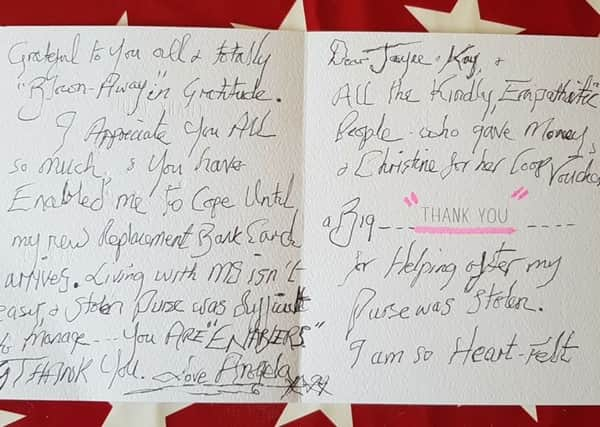 Dear Kay, &
All the Kindly, "Empathetic"
People - who gave Money,
& Christine for her Coop Voucher
a Big --- "THANK YOU" ----
for Helping after my
Purse was Stolen.
I am so Heart-Felt
Grateful to You all & totally
"Blown-Away" in Gratitude.
I Appreciate You All
so much, & You have
Enabled me to Cope Until
my new Replacement Bank Card
arrives. Living with MS isn't
easy & Stolen Purse was Difficult
to Manage --- You ARE "ENABLERS."
THANK You. Love Angela